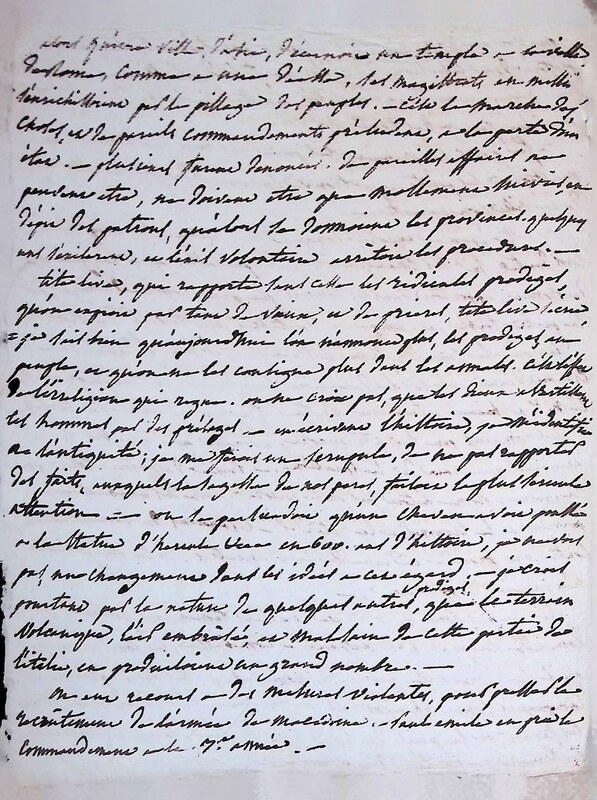 alors qu'une ville d'asie, décernoit un temple a la ville
de Rome, comme a une déesse, ses magistrats en mille
s'enrichissoient par le pillage des peuples. — C'est la marche des
choses, et de pareils commandements préludent, a la perte d'un
état. — plusieurs furent dénoncés. de pareilles affaires ne
peuvent etre, ne doivent etre que mollement suivies en
dépit des patrons, qu'alors se donnoient les provinces. quelques
uns s'exilerent, et l'exil volontaire arrêtoit les procédures. —
tite live, qui rapporte sans cesse les ridicules prodiges,
qu'on expioit par tant de vœux, et de prieres, tite live s'écrie
= je sais bien qu'aujourd'hui l'on n'annonce plus, les prodiges au
peuple, et qu'on ne les consigne plus dans les annales. C'est l'effet
de l'irreligion qui regne. on ne croit pas, que les dieux avertissent
les hommes par des présages — en écrivant l'histoire, je m'identifie
a l'antiquité; je me ferois un scrupule, de ne pas rapporter
des faits, auxquels la sagesse de nos peres, faisoit la plus sérieuse
attention = — on se persuadoit qu'un cheveu avoit poussé
a la statue d'hercule en 600. ans d'histoire, je ne vois
pas un changement dans les idées a cet égard. — je crois
pourtant par la nature de quelques autres prodiges, que le terrein
volcanique, l'air embrasé, et malsain de cette partie de
l'italie, en produisoient un grand nombre. —
On eut recours a des mesures violentes, pour presser le
recrutement de l'armée de macédoine. — Paul emile en prit le
commandement a la 7.e année. —